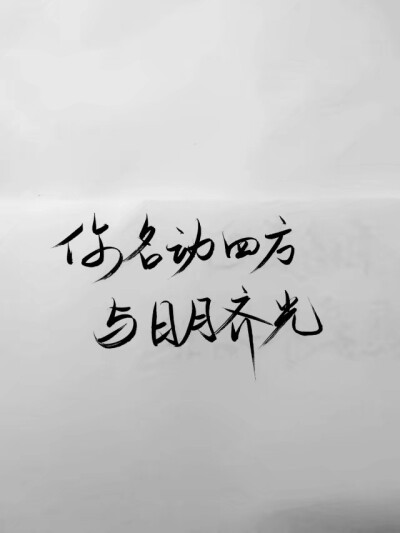 你名动四方
与日月齐光